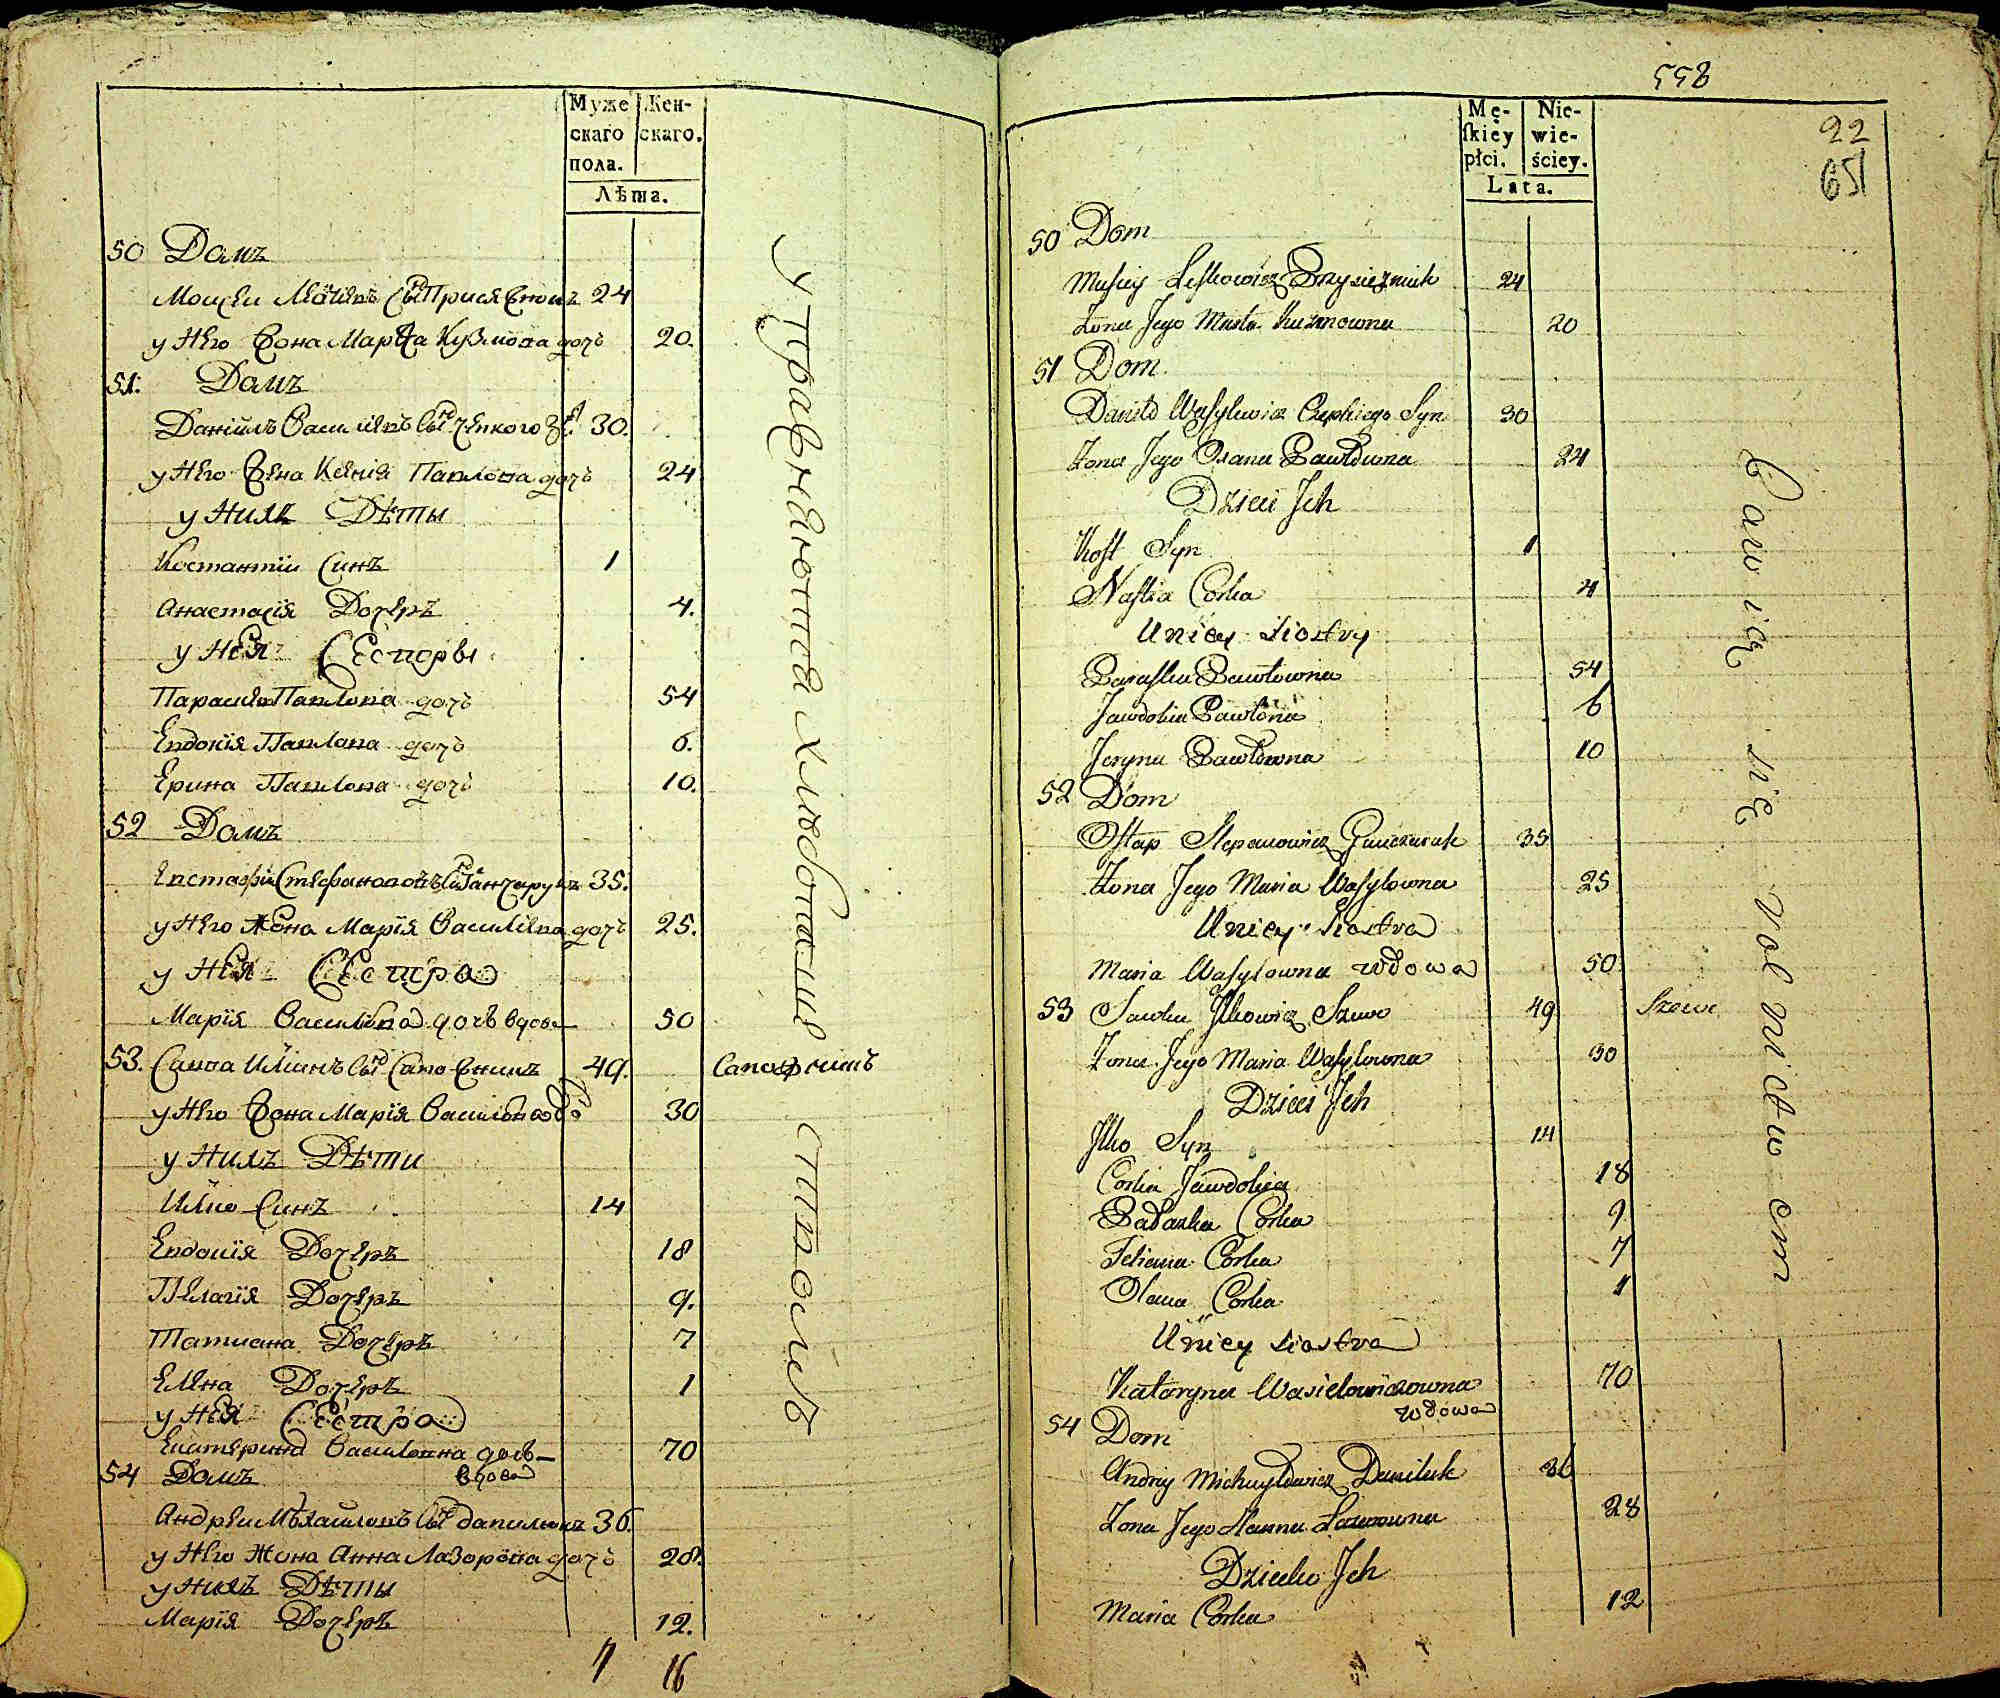 Муже
скаго
пола.
Жен-
скаго.
Лѣта.
50 Домъ
24
у Него Жона Марѳа Кузмова дочь 20.
51. Домъ
Данiилъ Василiевъ 30.
у Него Жена Ксенiя Павлова дочь 24
у Нихъ Дѣты
Костантiи Синъ 1
Анастасiя Дочеръ 4.
у Нея Сесторы
Параскa Павлова дочь 54
Евдокiя Павлова дочь 6.
Ерина Павлова дочь 10.
52 Домъ
Евстафiи Стефановъ 35.
у Него Жона Марiя Василiева дочь 25.
у Нея Сестра
Марiя Василiева дочь вдова 50
53. Савва Илiинъ 49. Сапожникъ
у Него Жона Марiя 30
у Нихъ Дѣти
Илко Синъ 14
Евдокiя Дочеръ 18
Пелагiя Дочеръ 9.
Татиана Дочеръ 7
Елена Дочеръ 1
у Нея Сестра
Екатерина дочь 70
вдова
54 Домъ
Андреи 36.
у Него Жона Анна Лазорова дочь 28.
у Нихъ Дѣты
Марiя Дочеръ 12.
7 16
Упражнаются хлѣбопашеством
558
22
651
Mę-
ſkiey
płci.
Nie-
wie-
ściey.
Lata.
50 Dom
Musiey Leskowicz Przysiężniuk 24
Zona Jego Marta Kuzmowna 20
51 Dom
Daniło Wasylewicz Czepkiego Syn 30
Zona Jego Oxana Pawłowna 24
Dzieci Jch
Kost Syn 1
Nastia Corka 4
U niey siostry
Paraska Pawłowna 54
Jawdokia Pawłowna 6
Jeryna Pawłowna 10
52 Dom
Ostap Stepanowicz Hanczaruk 35
Zona Jego Maria Wasylowna 25
U niey siostra
Maria Wasylowna wdowa 50
53 Sawka Jlkowicz Szewc 49 Szewc
Zona Jego Maria Wasylowna 30
Dzieci Jch
Jlko Syn 14
Corka Jawdokia 18
Pałazka Corka 9
Tetiana Corka 7
Olena Corka 1
U niey siostra
Kataryna Wasielowiczowna 70
wdowa
54 Dom
Andriy Michayłowicz Daniluk 36
Zona Jego Hanna Lazorowna 28
Dziecko Jch
Maria Corka 12
Bawią się rolnictwem